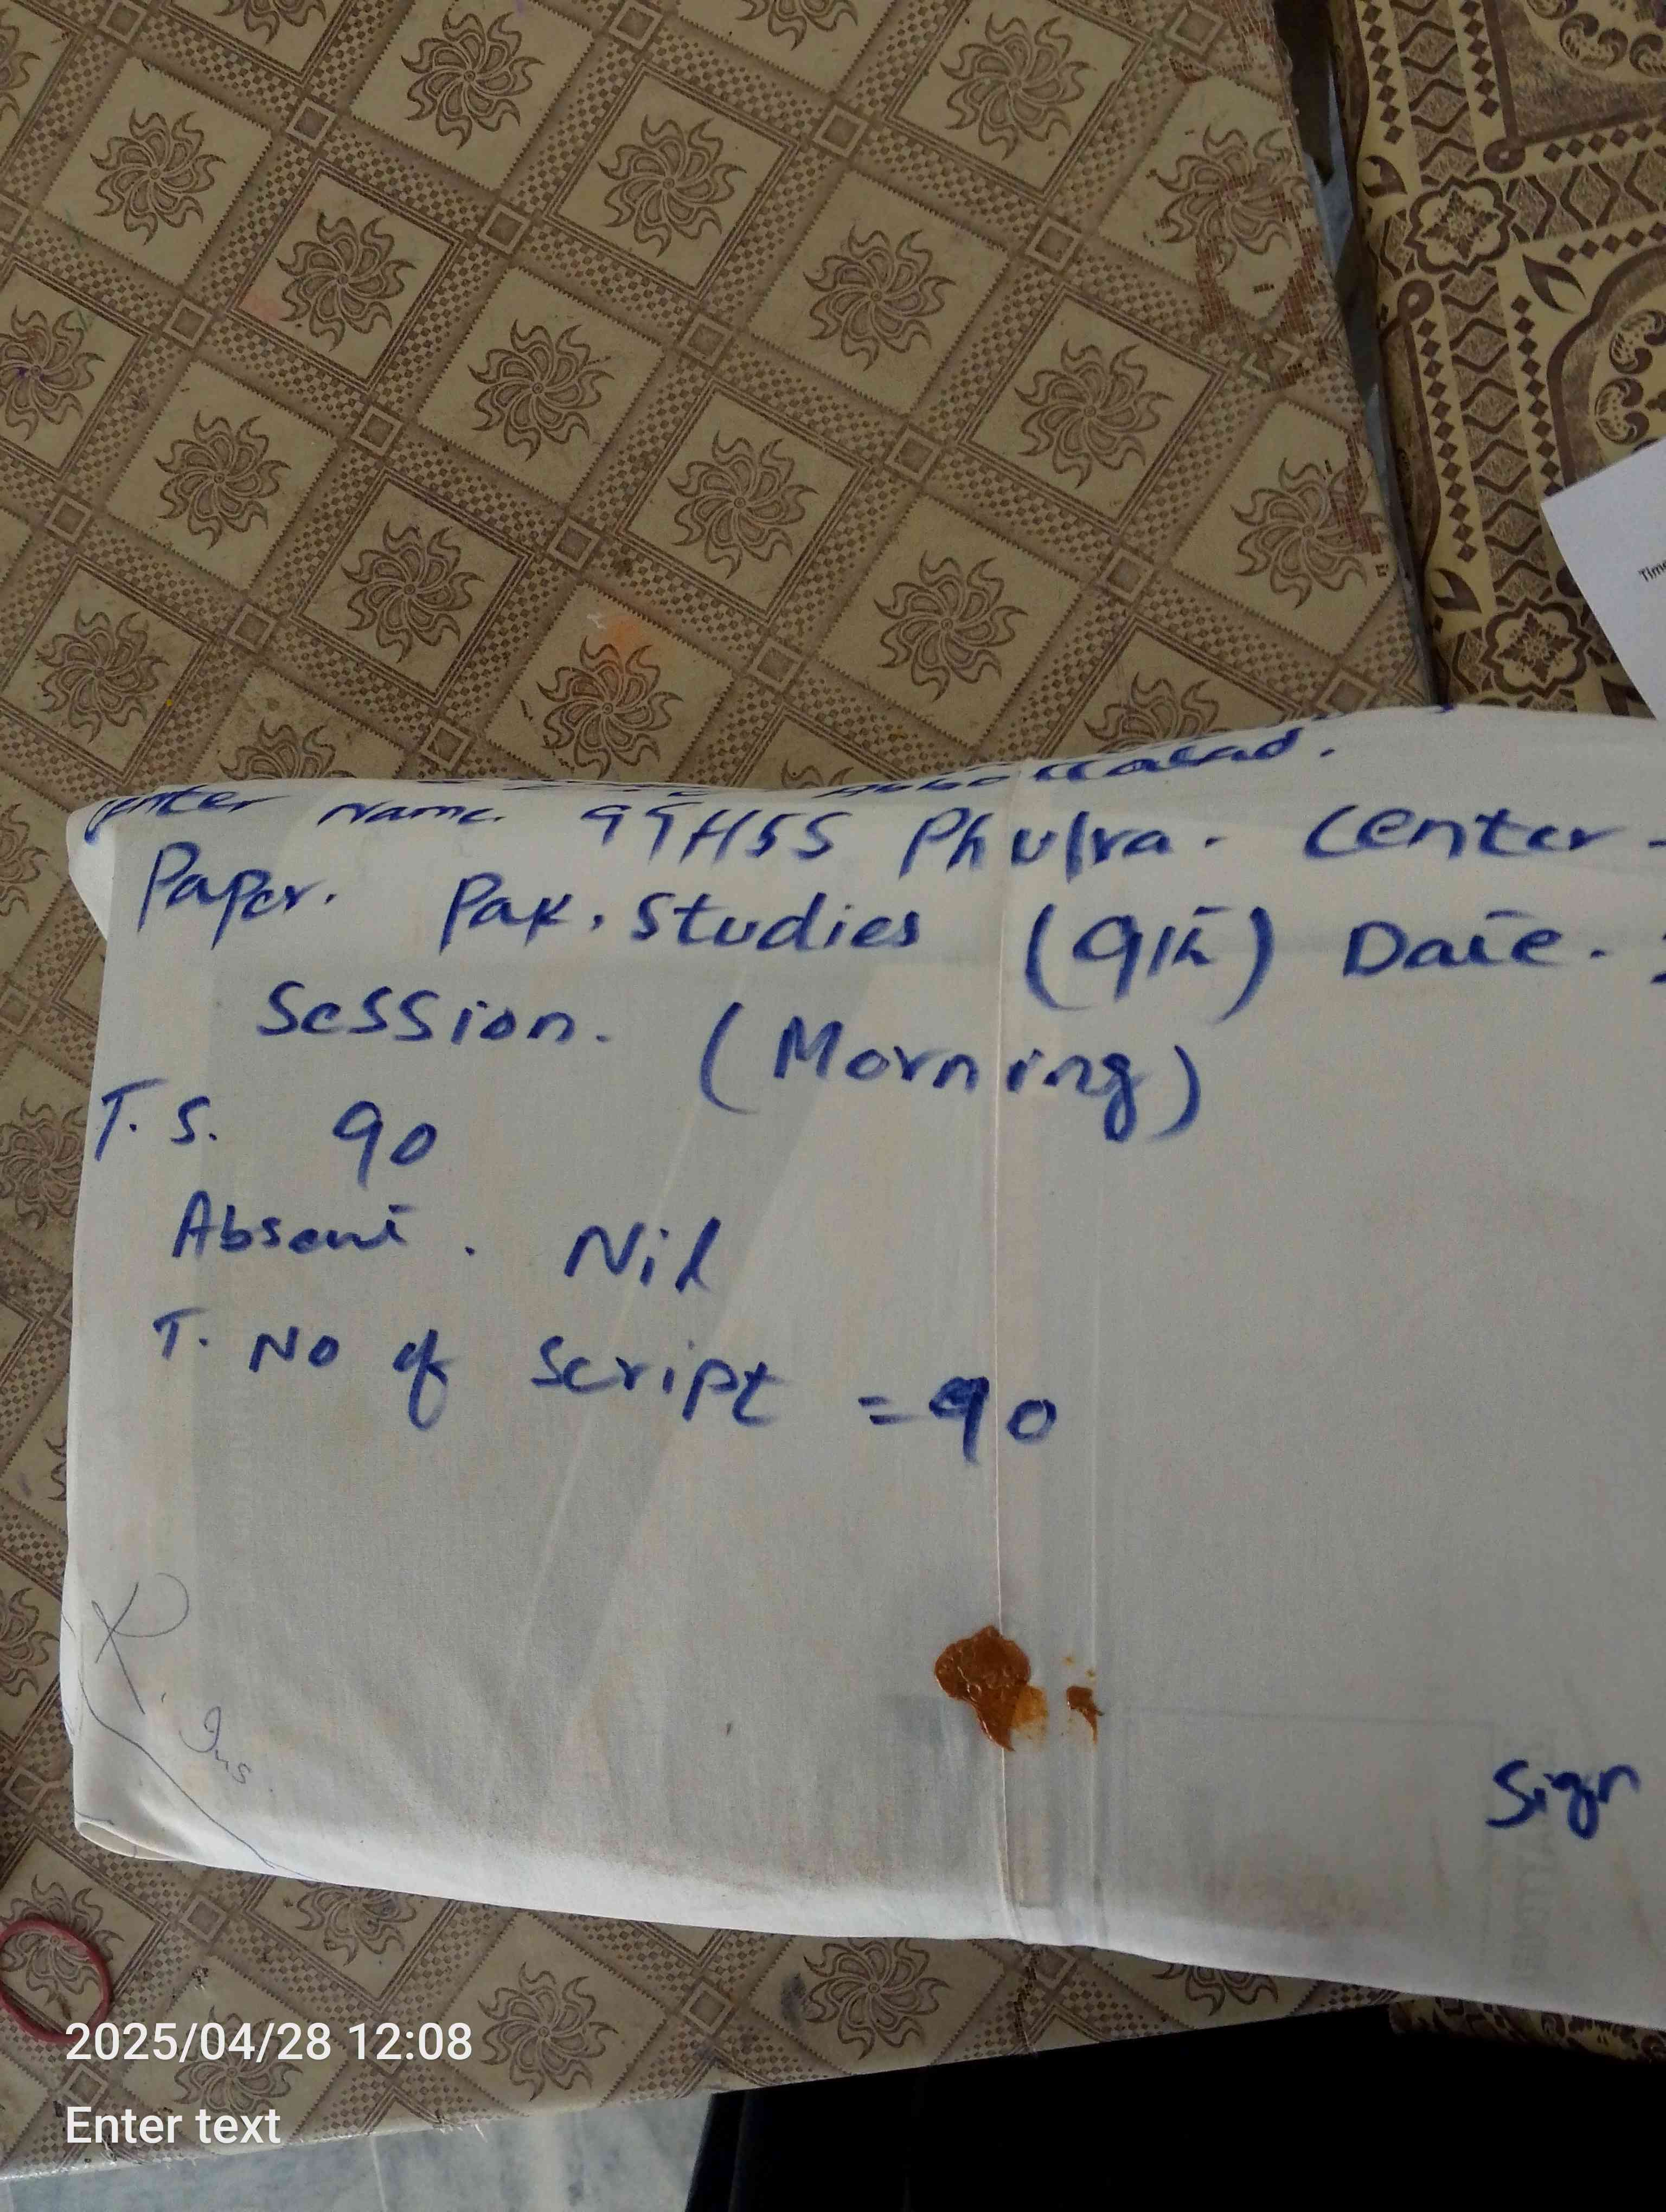 Abbottabad.
Center Name. GGHSS Phulra. Center
Paper. Pak. Studies (9th) Date.
Session. (Morning)
T. S. 90
Absent. Nil
T. No of Script = 90
Ins
Sign
Time
2025/04/28 12:08
Enter text